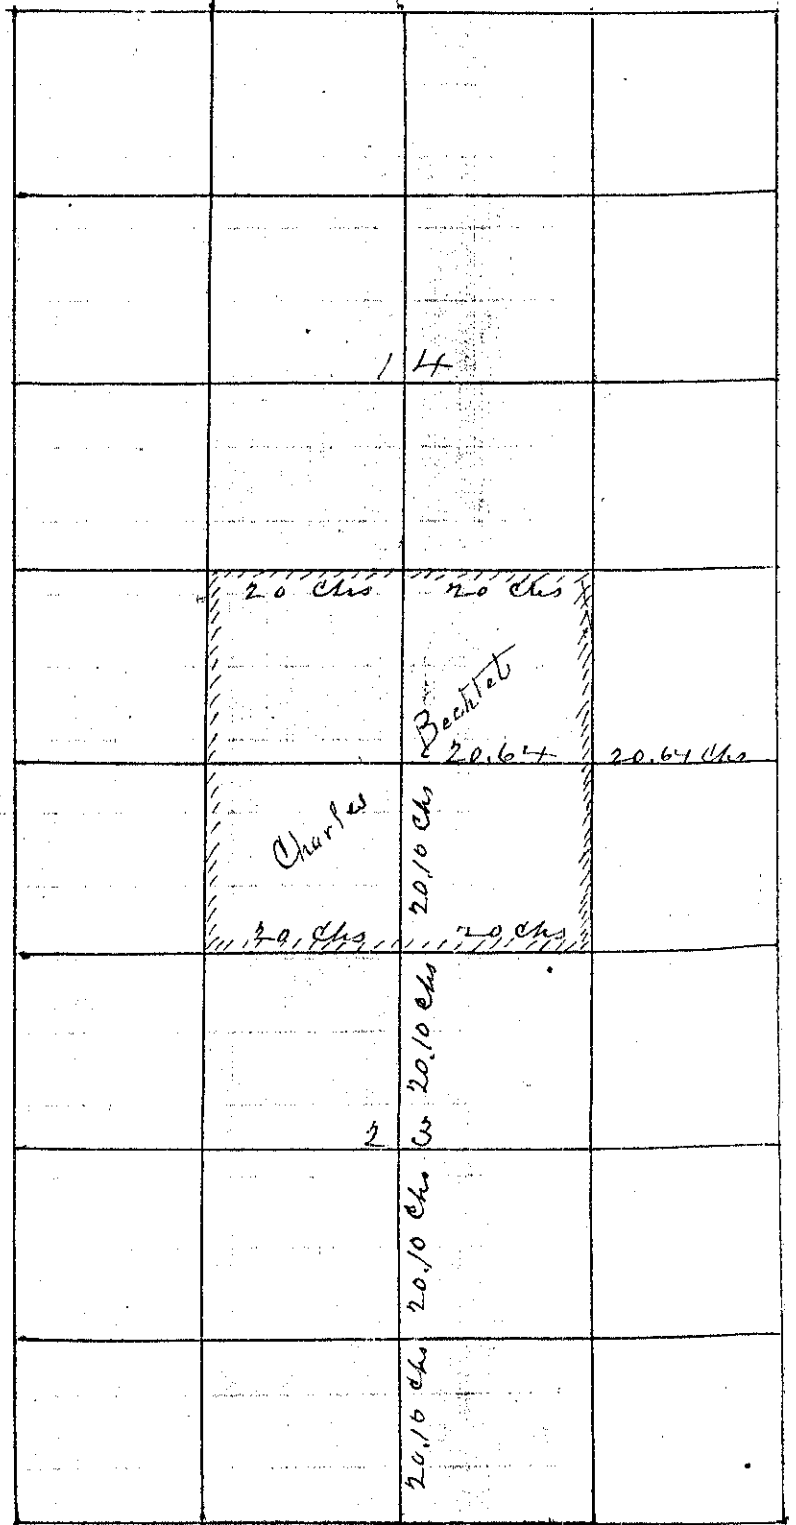 14
20 Chs 20 Chs
Bechtel
20.64 20.64 Chs
Charles
20.10 Chs
20 Chs 20 Chs
20.10 Chs
23
20.10 Chs
20.10 Chs